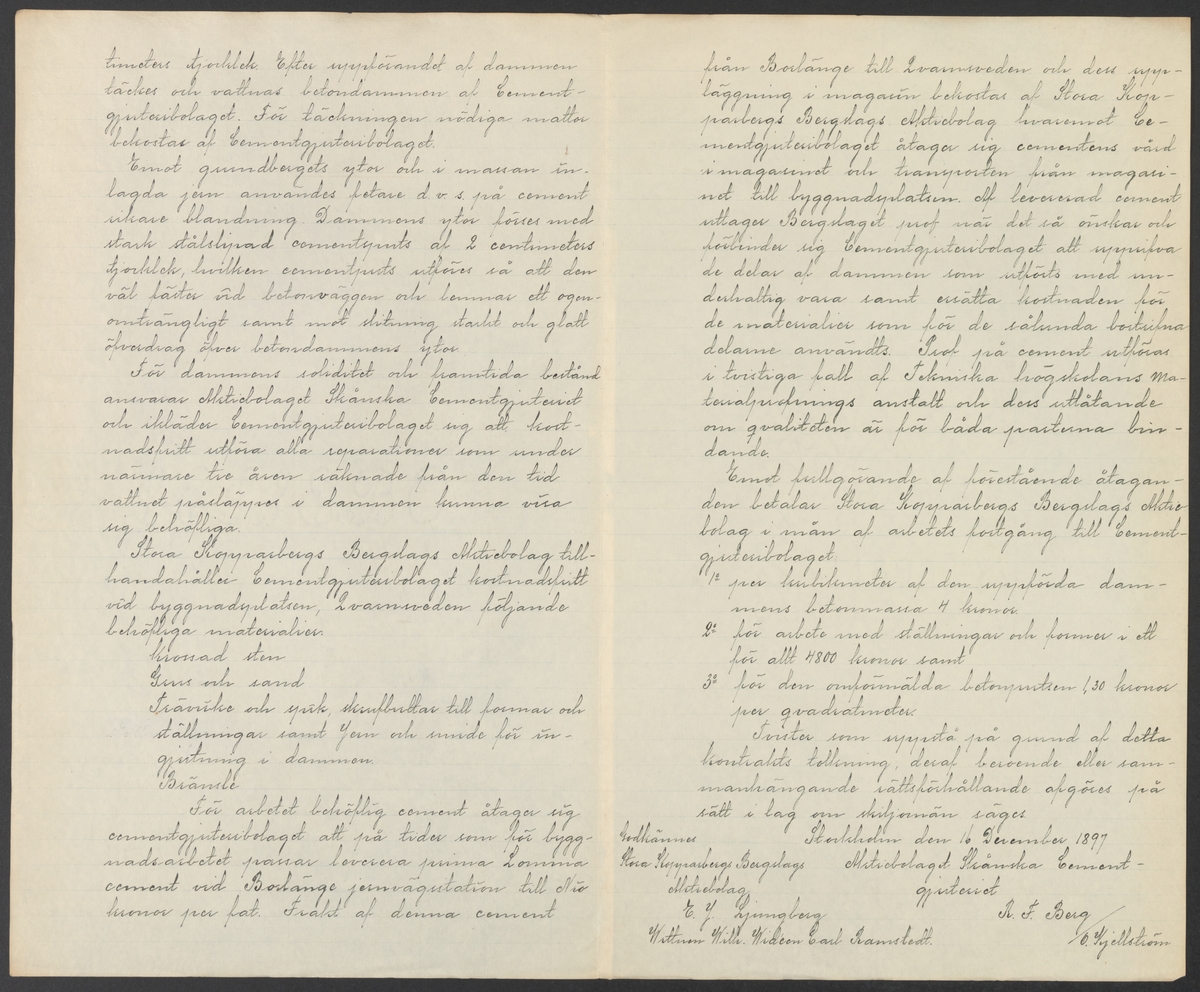 timeters tjocklek. Efter uppförandet af dammen
täckes och vattnas betondammen af Cement-
gjuteribolaget. För täckningen nödiga mattor
bekostas af Cementgjuteribolaget.
Emot grundbergets ytor och i massan in-
lagda jern användes fetare d.v.s. på cement
rikare blandning. Dammens ytor förses med
stark stålslipad cementputs af 2 centimeters
tjocklek, hvilken cementputs utföres så att den
väl fäster vid betonväggen och lemnar ett ogen-
omträngligt samt mot slitning starkt och glatt
öfverdrag öfver betondammens ytor.
För dammens soliditet och framtida bestånd
ansvarar Aktiebolaget Skånska Cementgjuteriet
och ikläder Cementgjuteribolaget sig att kost-
nadsfritt utföra alla reparationer som under
närmare tre åren räknade från den tid
vattnet påsläppes i dammen kunna visa
sig behöfliga.
Stora Kopparbergs Bergslags Aktiebolag till-
handahåller Cementgjuteribolaget kostnadsfritt
vid byggnadsplatsen, Qvarnsveden följande
behöfliga materialier:
Krossad sten
Grus och sand
Trävirke och spik, skrufbultar till formar och
ställningar samt Jern och smide för in-
gjutning i dammen.
Bränsle
För arbetet behöflig cement åtager sig
cementgjuteribolaget att på tider som för bygg-
nadsarbetet passar leverera prima Lomma
cement vid Borlänge jernvägsstation till Nio
kronor per fat. Frakt af denna cement
från Borlänge till Qvarnsveden och dess upp-
läggning i magasin bekostas af Stora Kop-
parbergs Bergslags Aktiebolag hvaremot Ce-
mentgjuteribolaget åtager sig cementens vård
i magasinet och transporten från magasi-
net till byggnadsplatsen. Af levererad cement
uttager Bergslaget prof när det så önskar och
förbinder sig Cementgjuteribolaget att upprifva
de delar af dammen som utförts med un-
derhaltig vara samt ersätta kostnaden för
de materialier som för de sålunda bortrifna
delarne användts. Prof på cement utföras
i tvistiga fall af Tekniska högskolans Ma-
terialprofnings anstalt och dess utlåtande
om qvaliteten är för båda parterna bin-
dande.
Emot fullgörande af förestående åtagan-
den betalar Stora Kopparbergs Bergslags Aktie
bolag i mån af arbetets fortgång till Cement-
gjuteribolaget.
1º per kubikmeter af den uppförda dam-
mens betonmassa 4 kronor.
2º för arbete med ställningar och former i ett
för allt 4800 kronor samt
3º för den omförmälda betonputsen 1,30 kronor
per qvadratmeter.
Tvister som uppstå på grund af detta
kontrakts tolkning, deraf beroende eller sam-
manhängande rättsförhållande afgöres på
sätt i lag om skiljemän säges
Stockholm den 16 December 1897
Godkännes
Stora Kopparbergs Bergslags Aktiebolaget Skånska Cement-
Aktiebolag gjuteriet
E. J. Ljungberg R. F. Berg
Wittnen Wilh. Wideen Carl Ramstedt. / O. Kjellström